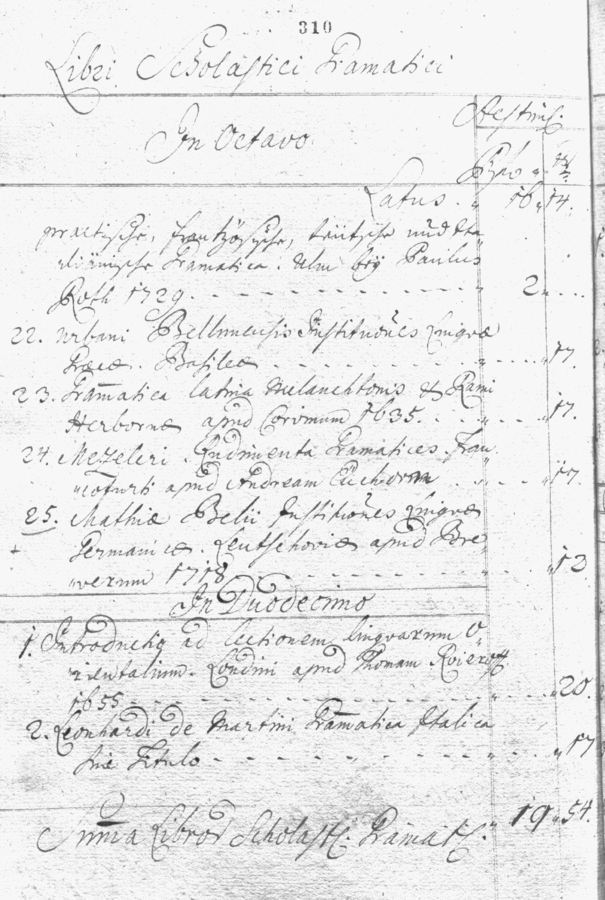 310
Libri Scholastici Gramatici
Aestim:
In Octavo
Rfl.
Latus. " 16 " 14.
practische, frantzösische, teütsche und Ita
"liänische Gramatica. Ulm beÿ Paulus
Roth 1729. - - - - - " 2 " ...
22. Urbani Bellunensis Institutiões Lingvæ
Græcæ. Basileæ - - - - " 17.
23. Gram̃atica latina Melanchtonis & Rami
Herbornæ apud Corvinum 1635. - - " 17.
24. Mezeleri Rudimenta Gramatices. Fran
"cofurti apud Andream Eichorn - - " 17.
25. Mathiæ Belii Institiões Lingvæ
Germanicæ. Leutschoviæ apud Bre
"verum 1718 - - - - " 12
In Duodecimo
1. Introductio ad lectionem lingvarum O
"rientalium. Londini apud Thomam
1655. - - - - " 20.
2. Leonhardi de Martini Gram̃atica Italica
sine Titulo - - - - " 17
Sum̃a Librorũ Scholast: Gramat: " 19 " 54.